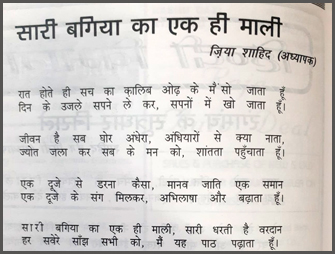 सारी बगिया का एक ही माली
ज़िया शाहिद (अध्यापक)
रात होते ही सच का क़ालिब ओढ़ के मैं सो जाता हूँ
दिन के उजले सपने ले कर, सपनों में खो जाता हूँ।
जीवन है सब घोर अंधेरा, अंधियारों से क्या नाता,
ज्योत जला कर सब के मन को, शांतता पहुँचाता हूँ।
एक दूजे से डरना कैसा, मानव जाति एक समान
एक दूजे के संग मिलकर, अभिलाषा और बढ़ाता हूँ।
सारी बगिया का एक ही माली, सारी धरती है वरदान
हर सवेरे साँझ सभी को, मैं यह पाठ पढ़ाता हूँ।